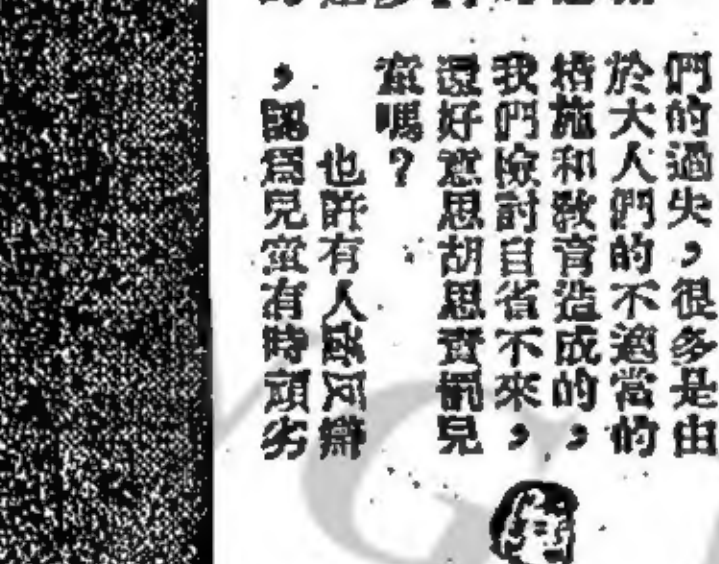 們的過失，很多是由
於大人們的不適當的
措施和教育造成的，
我們檢討自省不來，
還好意思胡思責罰兒
童嗎？
也許有人
，認爲兒童有時頑劣